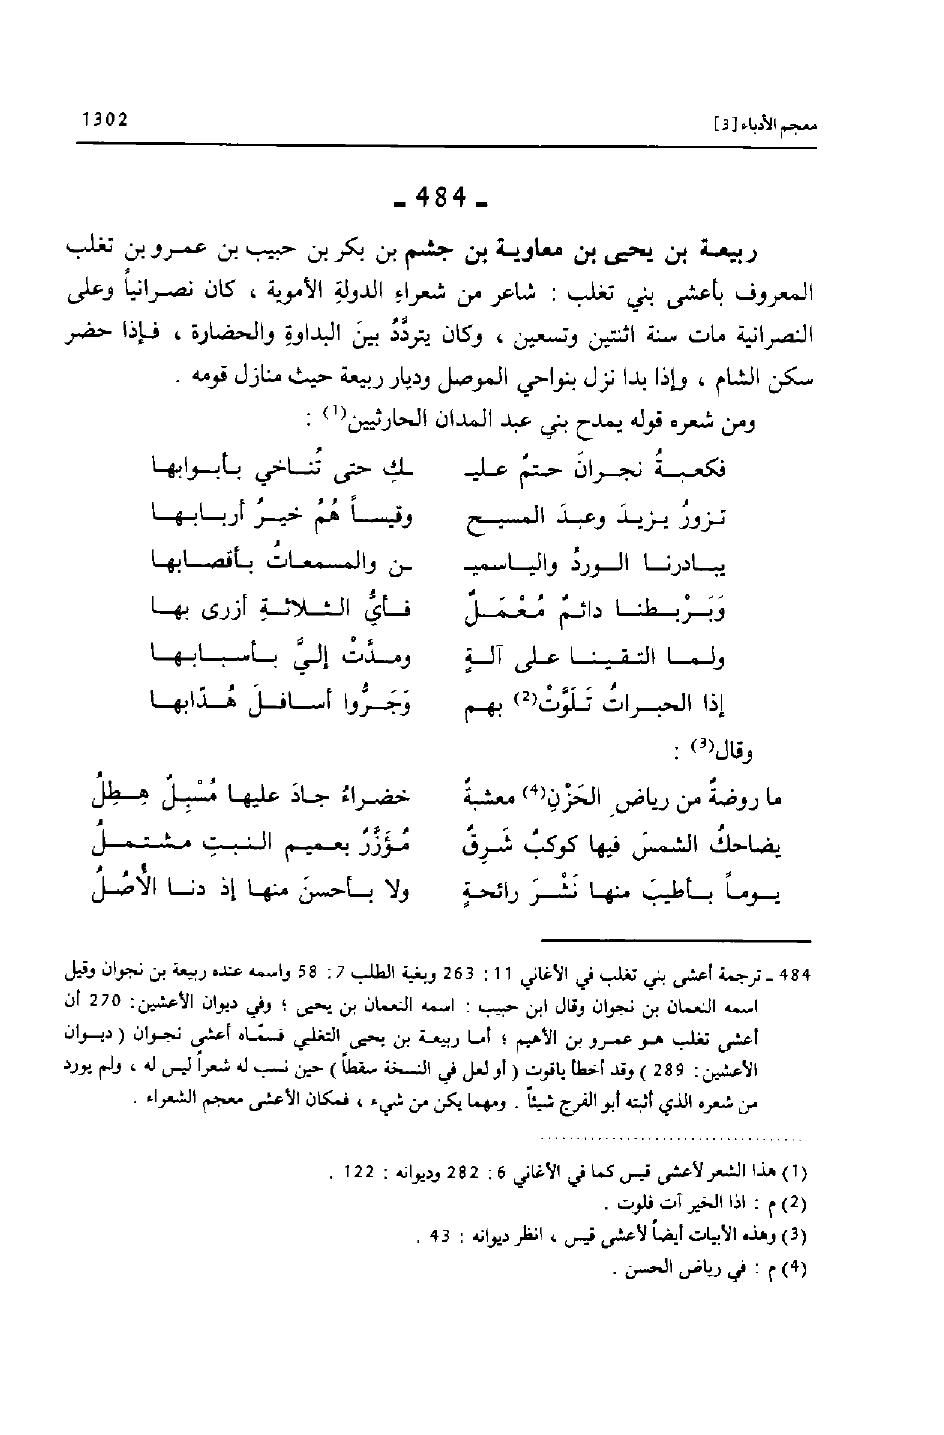 معجم الأدباء [3] 1302
ـ 484 ـ
ربيعة بن يحيى بن معاوية بن جشم بن بكر بن حبيب بن عمرو بن تغلب
المعروف بأعشى بني تغلب : شاعر من شعراء الدولة الأموية ، كان نصرانياً وعلى
النصرانية مات سنة اثنتين وتسعين ، وكان يتردّدُ بينَ البداوةِ والحضارة ، فإذا حضر
سكن الشام ، وإذا بدا نزل بنواحي الموصل وديار ربيعة حيث منازل قومه .
ومن شعره قوله يمدح بني عبد المدان الحارثيين(1) :
فكعبةُ نجرانَ حتمٌ عليـ ـك حتى تُناخي بأبوابها
تزورُ يزيدَ وعبدَ المسيح وقيساً هُمُ خيرُ أربابها
يبادرنا الوردُ والياسميـ ـن والمسمعاتُ بأقصابها
وَبَرْبطنا دائمٌ مُعْمَلٌ فأيُّ الثلاثةِ أزرى بها
ولما التقينا على آلةٍ ومدَّتْ إليَّ بأسبابها
إذا الحبراتُ تَلَوَّتْ(2) بهم وَجَرُّوا أسافلَ هُدّابها
وقال(3) :
ما روضةٌ من رياضِ الحَزْنِ(4) معشبةٌ خضراءُ جادَ عليها مُسْبِلٌ هطِلُ
يضاحكُ الشمسَ فيها كوكبٌ شَرِقٌ مُؤَزَّرٌ بعميمِ النبتِ مشتملُ
يوماً بأطيبَ منها نَشْرَ رائحةٍ ولا بأحسنَ منها إذ دنا الأُصُلُ
484 ـ ترجمة أعشى بني تغلب في الأغاني 11 : 263 وبغية الطلب 7 : 58 واسمه عنده ربيعة بن نجوان وقيل
اسمه النعمان بن نجوان وقال ابن حبيب : اسمه النعمان بن يحيى ؛ وفي ديوان الأعشين : 270 أن
أعشى تغلب هو عمرو بن الأهيم ؛ أما ربيعة بن يحيى التغلبي فسمّاه أعشى نجوان ( ديوان
الأعشين : 289 ) وقد أخطأ ياقوت ( أو لعل في النسخة سقطاً ) حين نسب له شعراً ليس له ، ولم يورد
من شعره الذي أثبته أبو الفرج شيئاً . ومهما يكن من شيء ، فمكان الأعشى معجم الشعراء .
(1) هذا الشعر لأعشى قيس كما في الأغاني 6 : 282 وديوانه : 122 .
(2) م : اذا الخير آت فلوت .
(3) وهذه الأبيات أيضاً لأعشى قيس ، انظر ديوانه : 43 .
(4) م : في رياض الحسن .